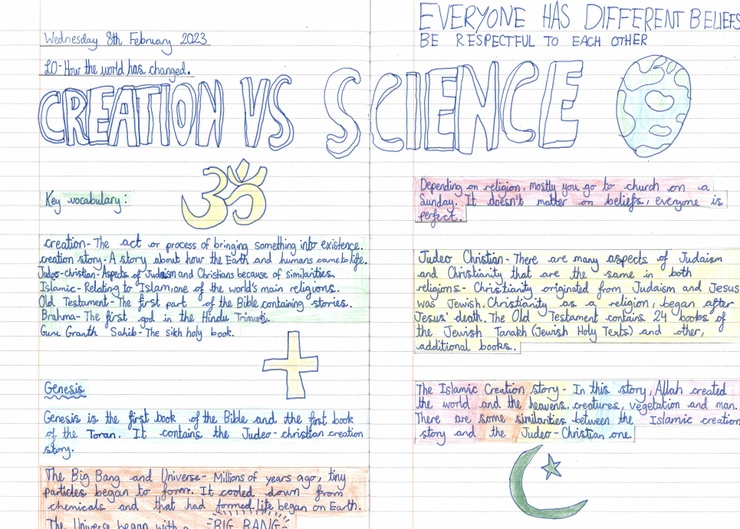 Wednesday 8th February 2023
LO- How the world has changed.
CREATION VS SCIENCE
Key vocabulary:
creation- The act or process of bringing something into existence.
creation story- A story about how the Earth and humans came to life.
Judeo-christian- Aspects of Judaism and Christians because of similarities.
Islamic- Relating to Islam, one of the world's main religions.
Old Testament- The first part of the Bible containing stories.
Brahma- The first god in the Hindu Trimurti.
Guru Granth Sahib- The sikh holy book.
Genesis
Genesis is the first book of the Bible and the first book
of the Torah. It contains the Judeo-christian creation
story.
The Big Bang and Universe- Millions of years ago, tiny
particles began to form. It cooled down from
chemicals and that had formed. life began on Earth.
The Universe began with a BIG BANG
EVERYONE HAS DIFFERENT BELIEFS
BE RESPECTFUL TO EACH OTHER
Depending on religion, mostly you go to church on a
Sunday. It doesn't matter on beliefs, everyone is
perfect.
Judeo Christian- There are many aspects of Judaism
and Christianity that are the same in both
religions- Christianity originated from Judaism and Jesus
was Jewish. Christianity as a religion, began after
Jesus' death. The Old Testament contains 24 books of
the Jewish Tanakh (Jewish Holy Texts) and other,
additional books.
The Islamic Creation story- In this story, Allah created
the world and the heavens. creatures, vegetation and man.
There are some similarities between the Islamic creation
story and the Judeo-Christian one.